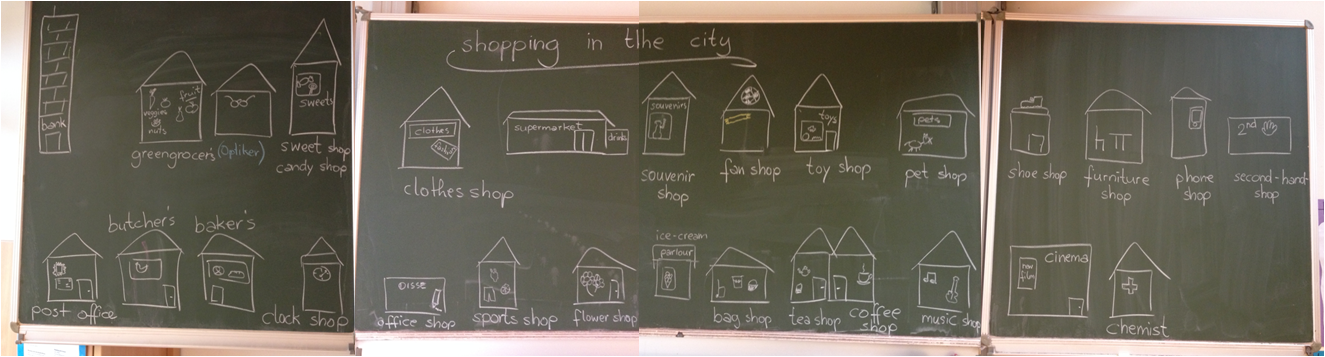 shopping in the city
bank
veggies
nuts
fruit
greengrocers
(Optiker)
sweets
sweet shop
candy shop
clothes
clothes shop
supermarket
drinks
souvenirs
souvenir
shop
fan shop
toys
toy shop
pets
pet shop
shoe shop
furniture
shop
phone
shop
2nd
second-hand-
shop
post office
butcher's
baker's
clock shop
OISSE
office shop
sports shop
flower shop
ice-cream
parlour
bag shop
tea shop
coffee
shop
music shop
cinema
new
film
chemist